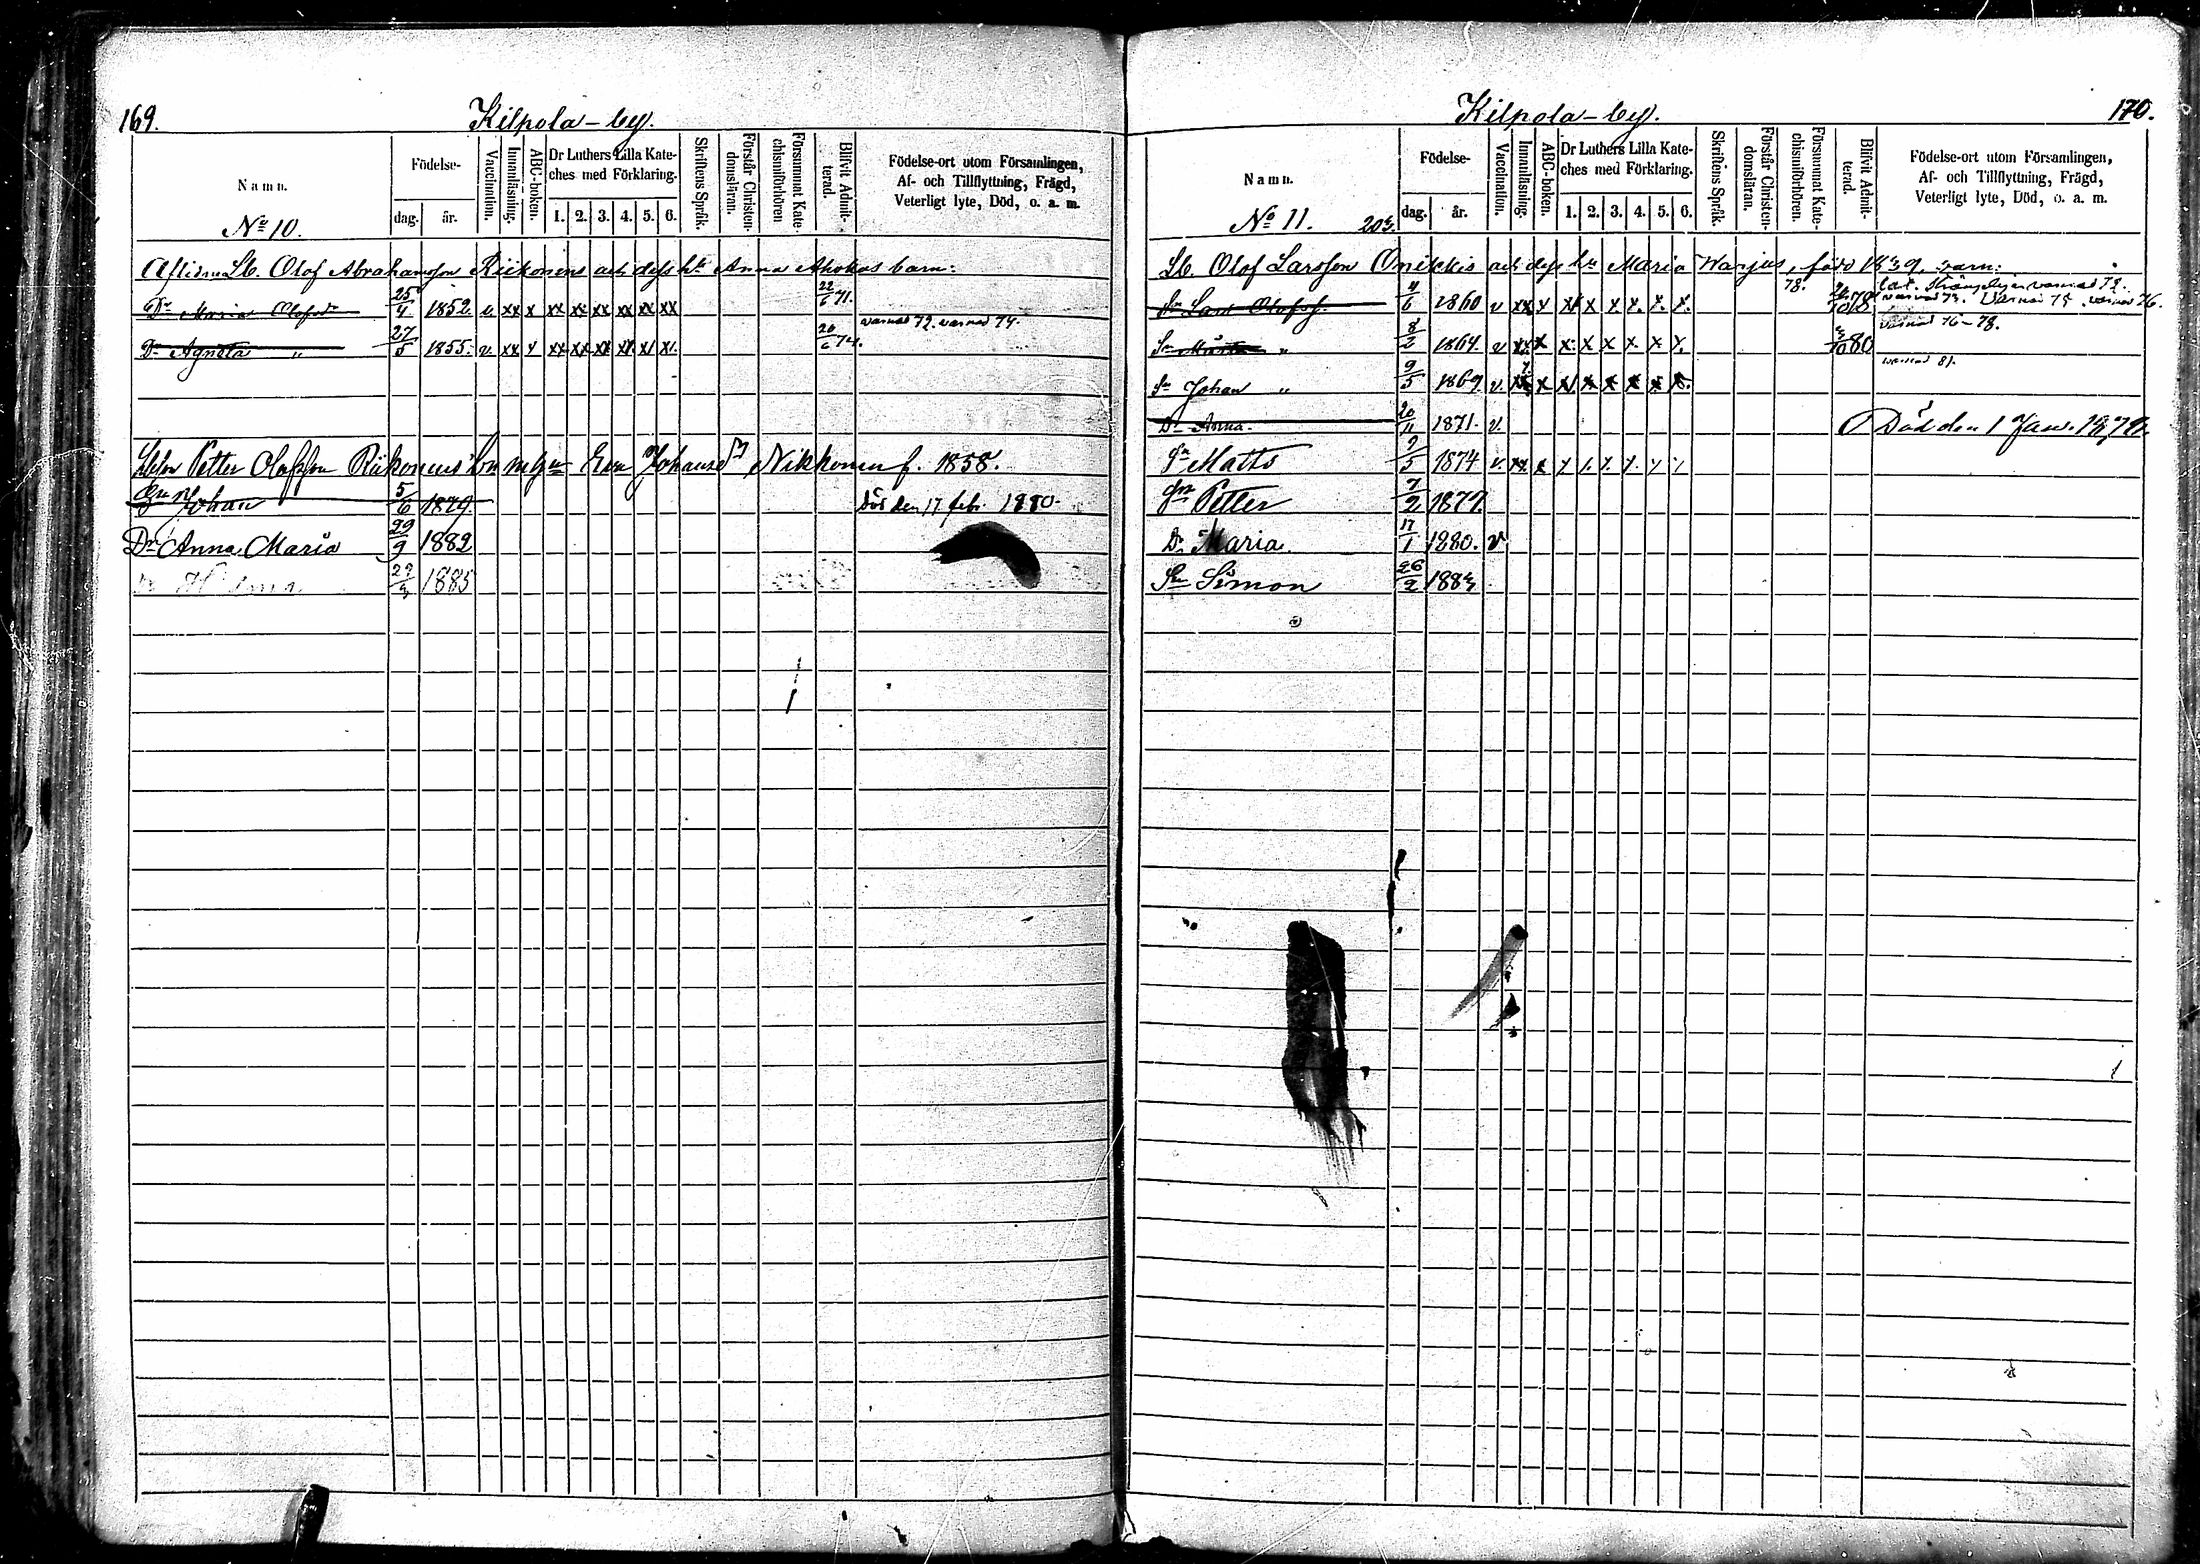 169.
Kilpola-by.
Namn.
Födelse-
dag.
år.
Vaccination.
Innanläsning.
ABC-boken.
Dr Luthers Lilla Kate-
ches med Förklaring.
1. 2. 3. 4. 5. 6.
Skriftens Språk.
Förstår Christen-
domsläran.
Försummat Kate-
chismiförhören
Blifvit Admit-
terad.
Födelse-ort utom Församlingen,
Af- och Tillflyttning, Frägd,
Veterligt lyte, Död, o. a. m.
No 10.
Aflidne Lb. Olof Abrahamsson Riikonens och dess hu Anna Ahokas barn:
Dr Maria Olofsdr 25/4 1852 v. xx x xx xx xx xx xx xx 22/6 71.
Dr Agneta " 27/5 1855. v. xx x xx xx xx xx x xx 20/6 74. varnad 72. varnad 74.
Petter Olofsson Riikonens Eva Johansdr Nikkonen f. 1858.
Sn Johan 5/6 1879 Död den 17 febr. 1880.
Dr Anna Maria 29/9 1882
1885
170.
Kilpola-by.
Namn.
Födelse-
dag.
år.
Vaccination.
Innanläsning.
ABC-boken.
Dr Luthers Lilla Kate-
ches med Förklaring.
1. 2. 3. 4. 5. 6.
Skriftens Språk.
Förstår Christen-
domsläran.
Försummat Kate-
chismiförhören.
Blifvit Admit-
terad.
Födelse-ort utom Församlingen,
Af- och Tillflyttning, Frägd,
Veterligt lyte, Död, o. a. m.
No 11.
Lb. Olof Larsson Onikkis och dess hu Maria Warjus, född 1839, barn:
Sn Lars Olofss. 4/6 1860 v xx x xx x x. x. x. x. 78. varnad 72.
varnad 73. Varnad 75. varnad 76.
Sn " 8/2 1864 v xx x x x x x x x. 80 varnad 76-78.
Sn Johan " 9/5 1869 v. xx x x x x x x x. varnad 81.
Dr Anna. 20/11 1871. v. Död den 1 Jan.
Sn Matts 9/5 1874 v. xx x x x. x. x. x x
Sn Petter 7/2 1877.
Dr Maria. 17/1 1880. v
Sn Simon 26/2 1883